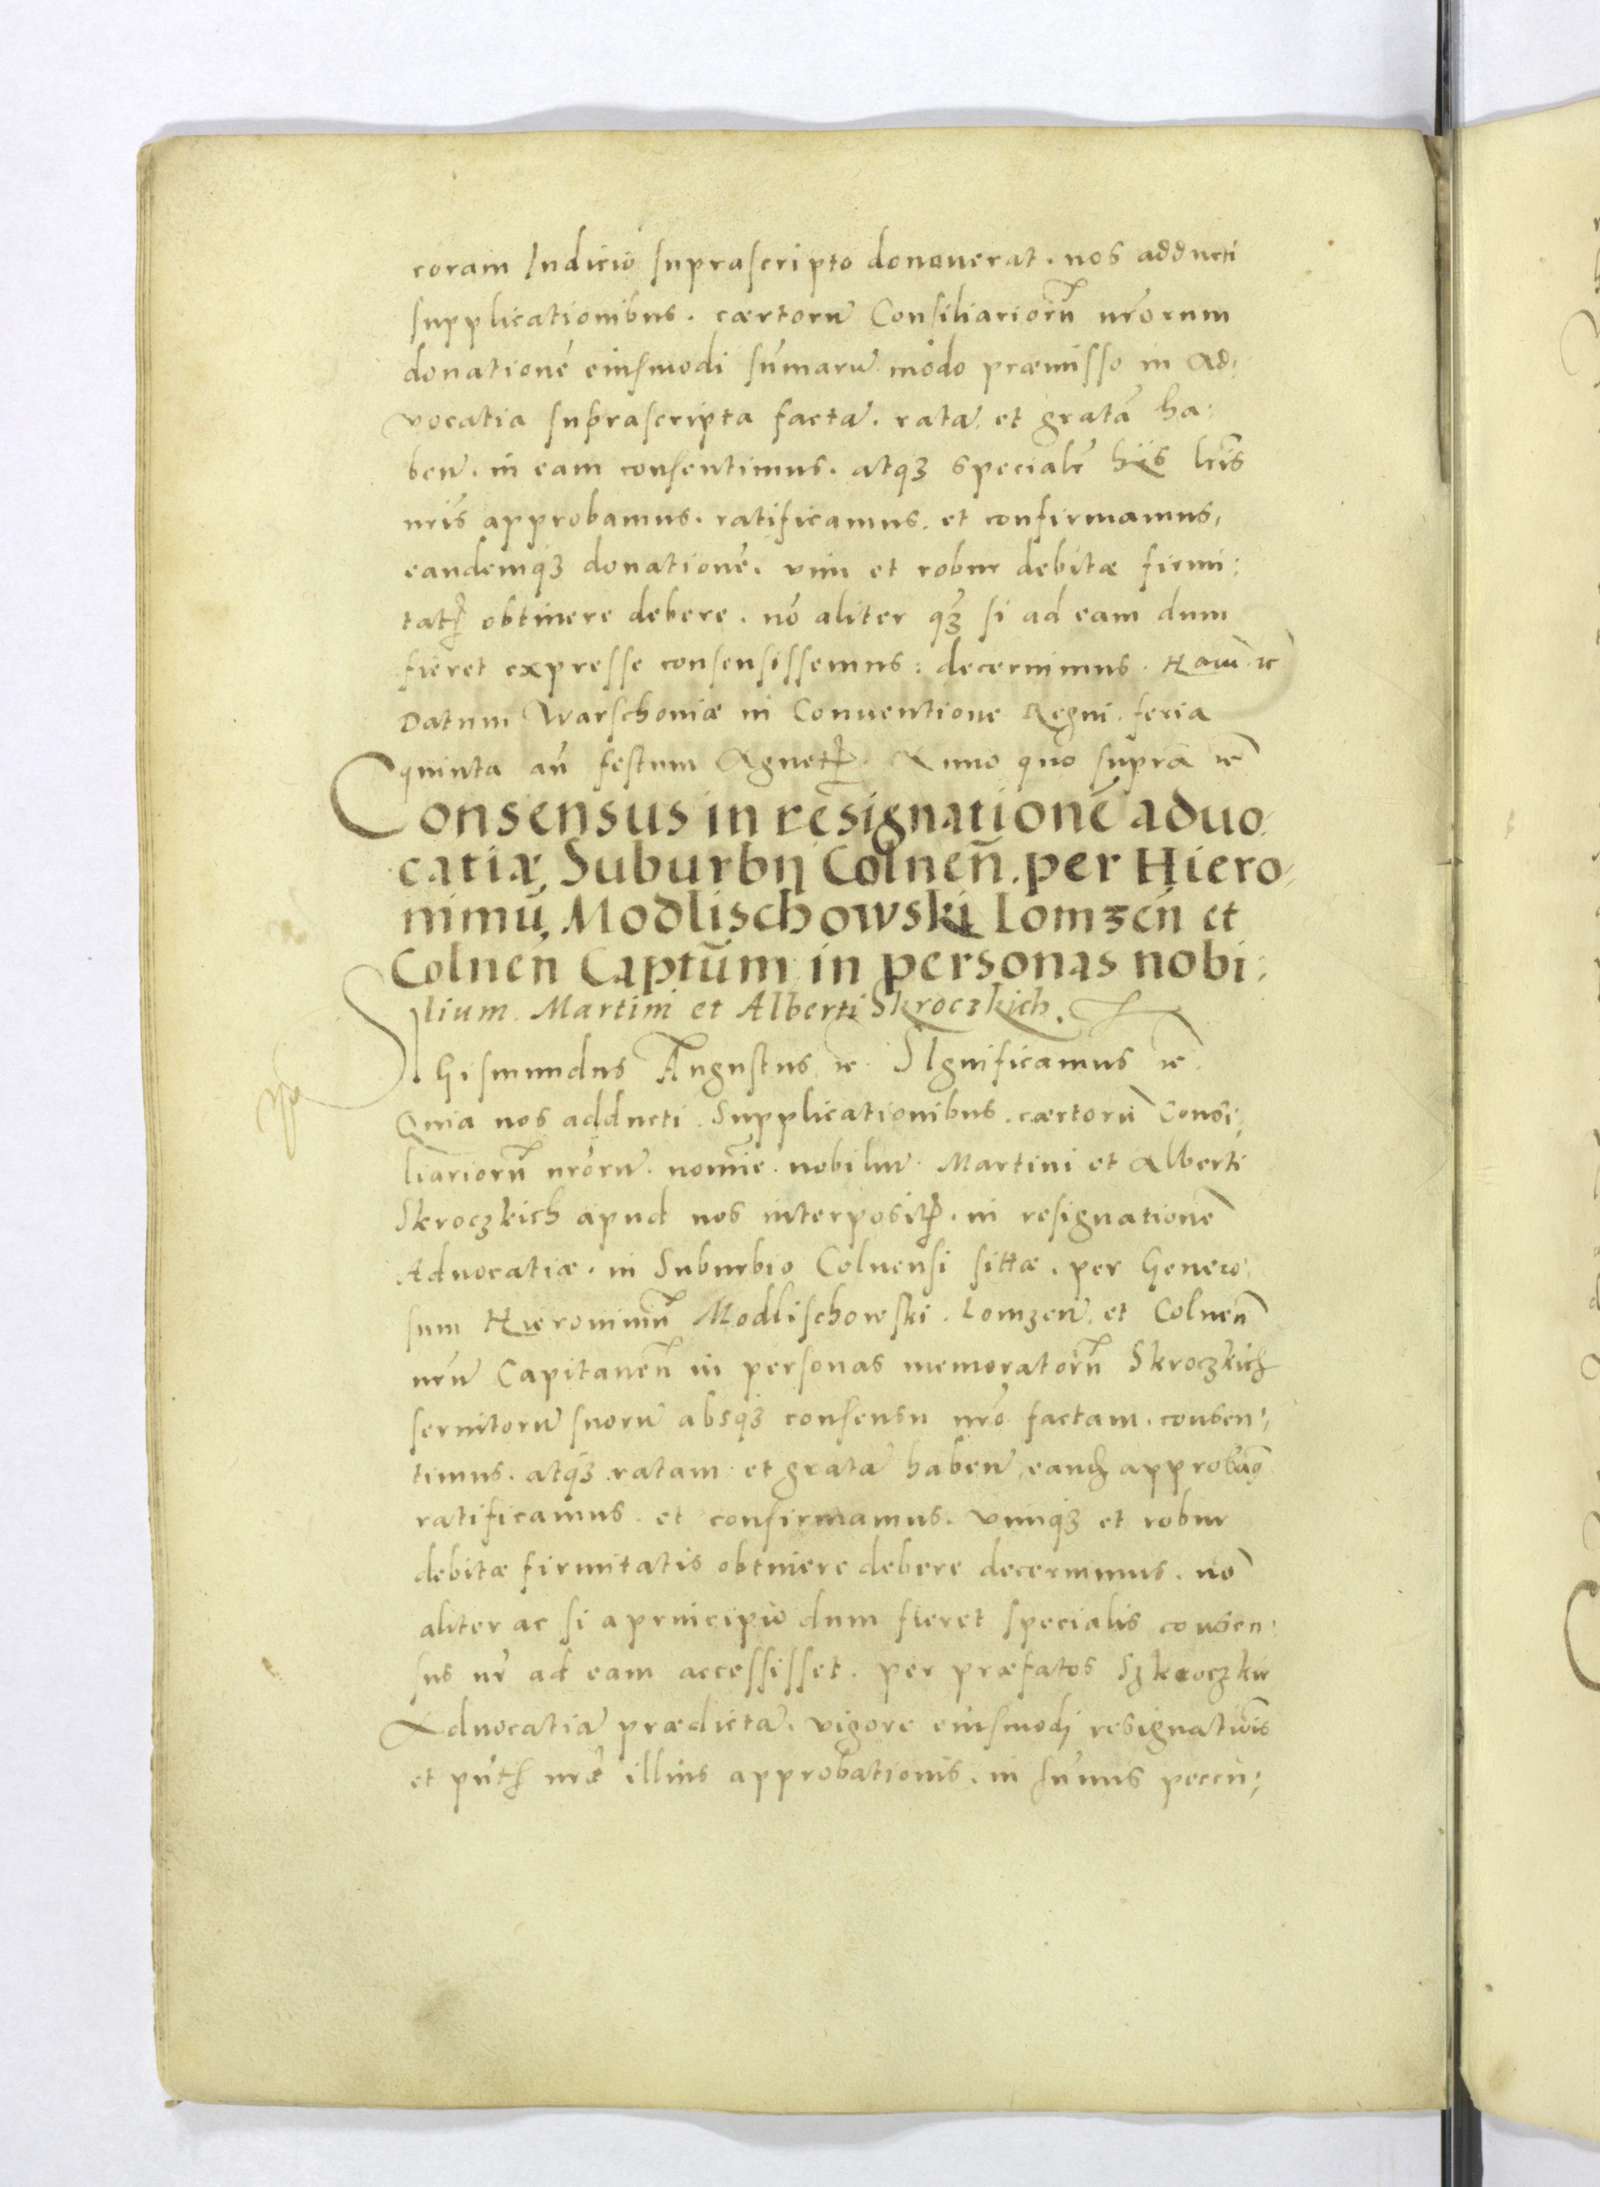 coram Iudicio suprascripto donauerat. nos adducti
supplicationibus. cærtorū Consiliariorū nrōrum
donationē eiusmodi sūmarū modo præmisso in Ad:
vocatia suprascripta factā. ratā et gratā ha:
ben̄. in eam consentimus. atqꝫ specialr̄ hijs lrīs
nrīs approbamus. ratificamus. et confirmamus,
eandemqꝫ donationē. vim et robur debitæ firmi:
tatꝭ obtinere debere. nō aliter qꝫ si ad eam dum
fieret expresse consensissemus: decernimus. Harū ꝛc
Datum Warschouiæ in Conuentione Regni. feria
quinta an̄ festum Agnetꝭ. Anno quo supra ꝛc
Consensus in resignationē aduo:
catiæ, Suburbij Colneñ. per Hiero:
nimū, Modlischowski Lomzeń et
Colnen Captūm in personas nobi:
lium. Martini et Alberti Skroczkich.
Sigismundus Augustus ꝛc. SIgnificamus ꝛc.
Quia nos adducti. Supplicationibus. cærtorū Consi:
liariorū nrōrū. nomīe. nobiliū. Martini et Alberti
Skroczkich apud nos interpositꝭ. in resignationē
Aduocatiæ. in Suburbio Colnensi sittæ. per Genero:
sum Hieronimū Modlischowski. Lomzen̄. et Colnen̄
nrūm Capitaneū in personas memoratorū Skroczkich
seruitorū suorū absqꝫ consensu nrō factam. consen:
timus. atqꝫ ratam et gratā haben̄, eandꝫ approbaꝰ
ratificamus. et confirmamus. vimqꝫ et robur
debitæ firmitatis obtinere debere decernimus. nō
aliter ac si a principio dum fieret specialis consen:
sus nr̄ ad eam accessisset. per præfatos Szkroczkie
Aduocatiā prædictā. vigore eiusmodj resignatiōis
et pn̄tꝭ nrǣ illius approbationis. in sum̄is peccu: